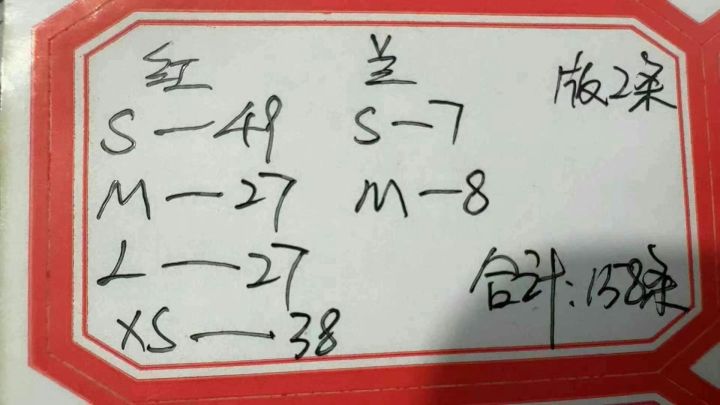 红 兰 版2条
S—49 S—7
M—27 M—8
L—27 合计:158条
XS—38